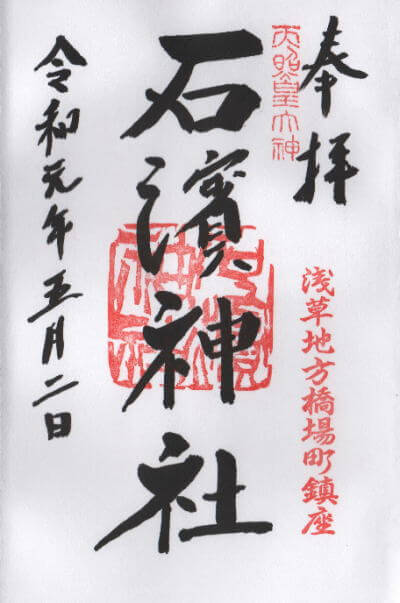 奉拝
天照皇大神
浅草地方橋場町鎮座
石濱神社
令和元年五月二日